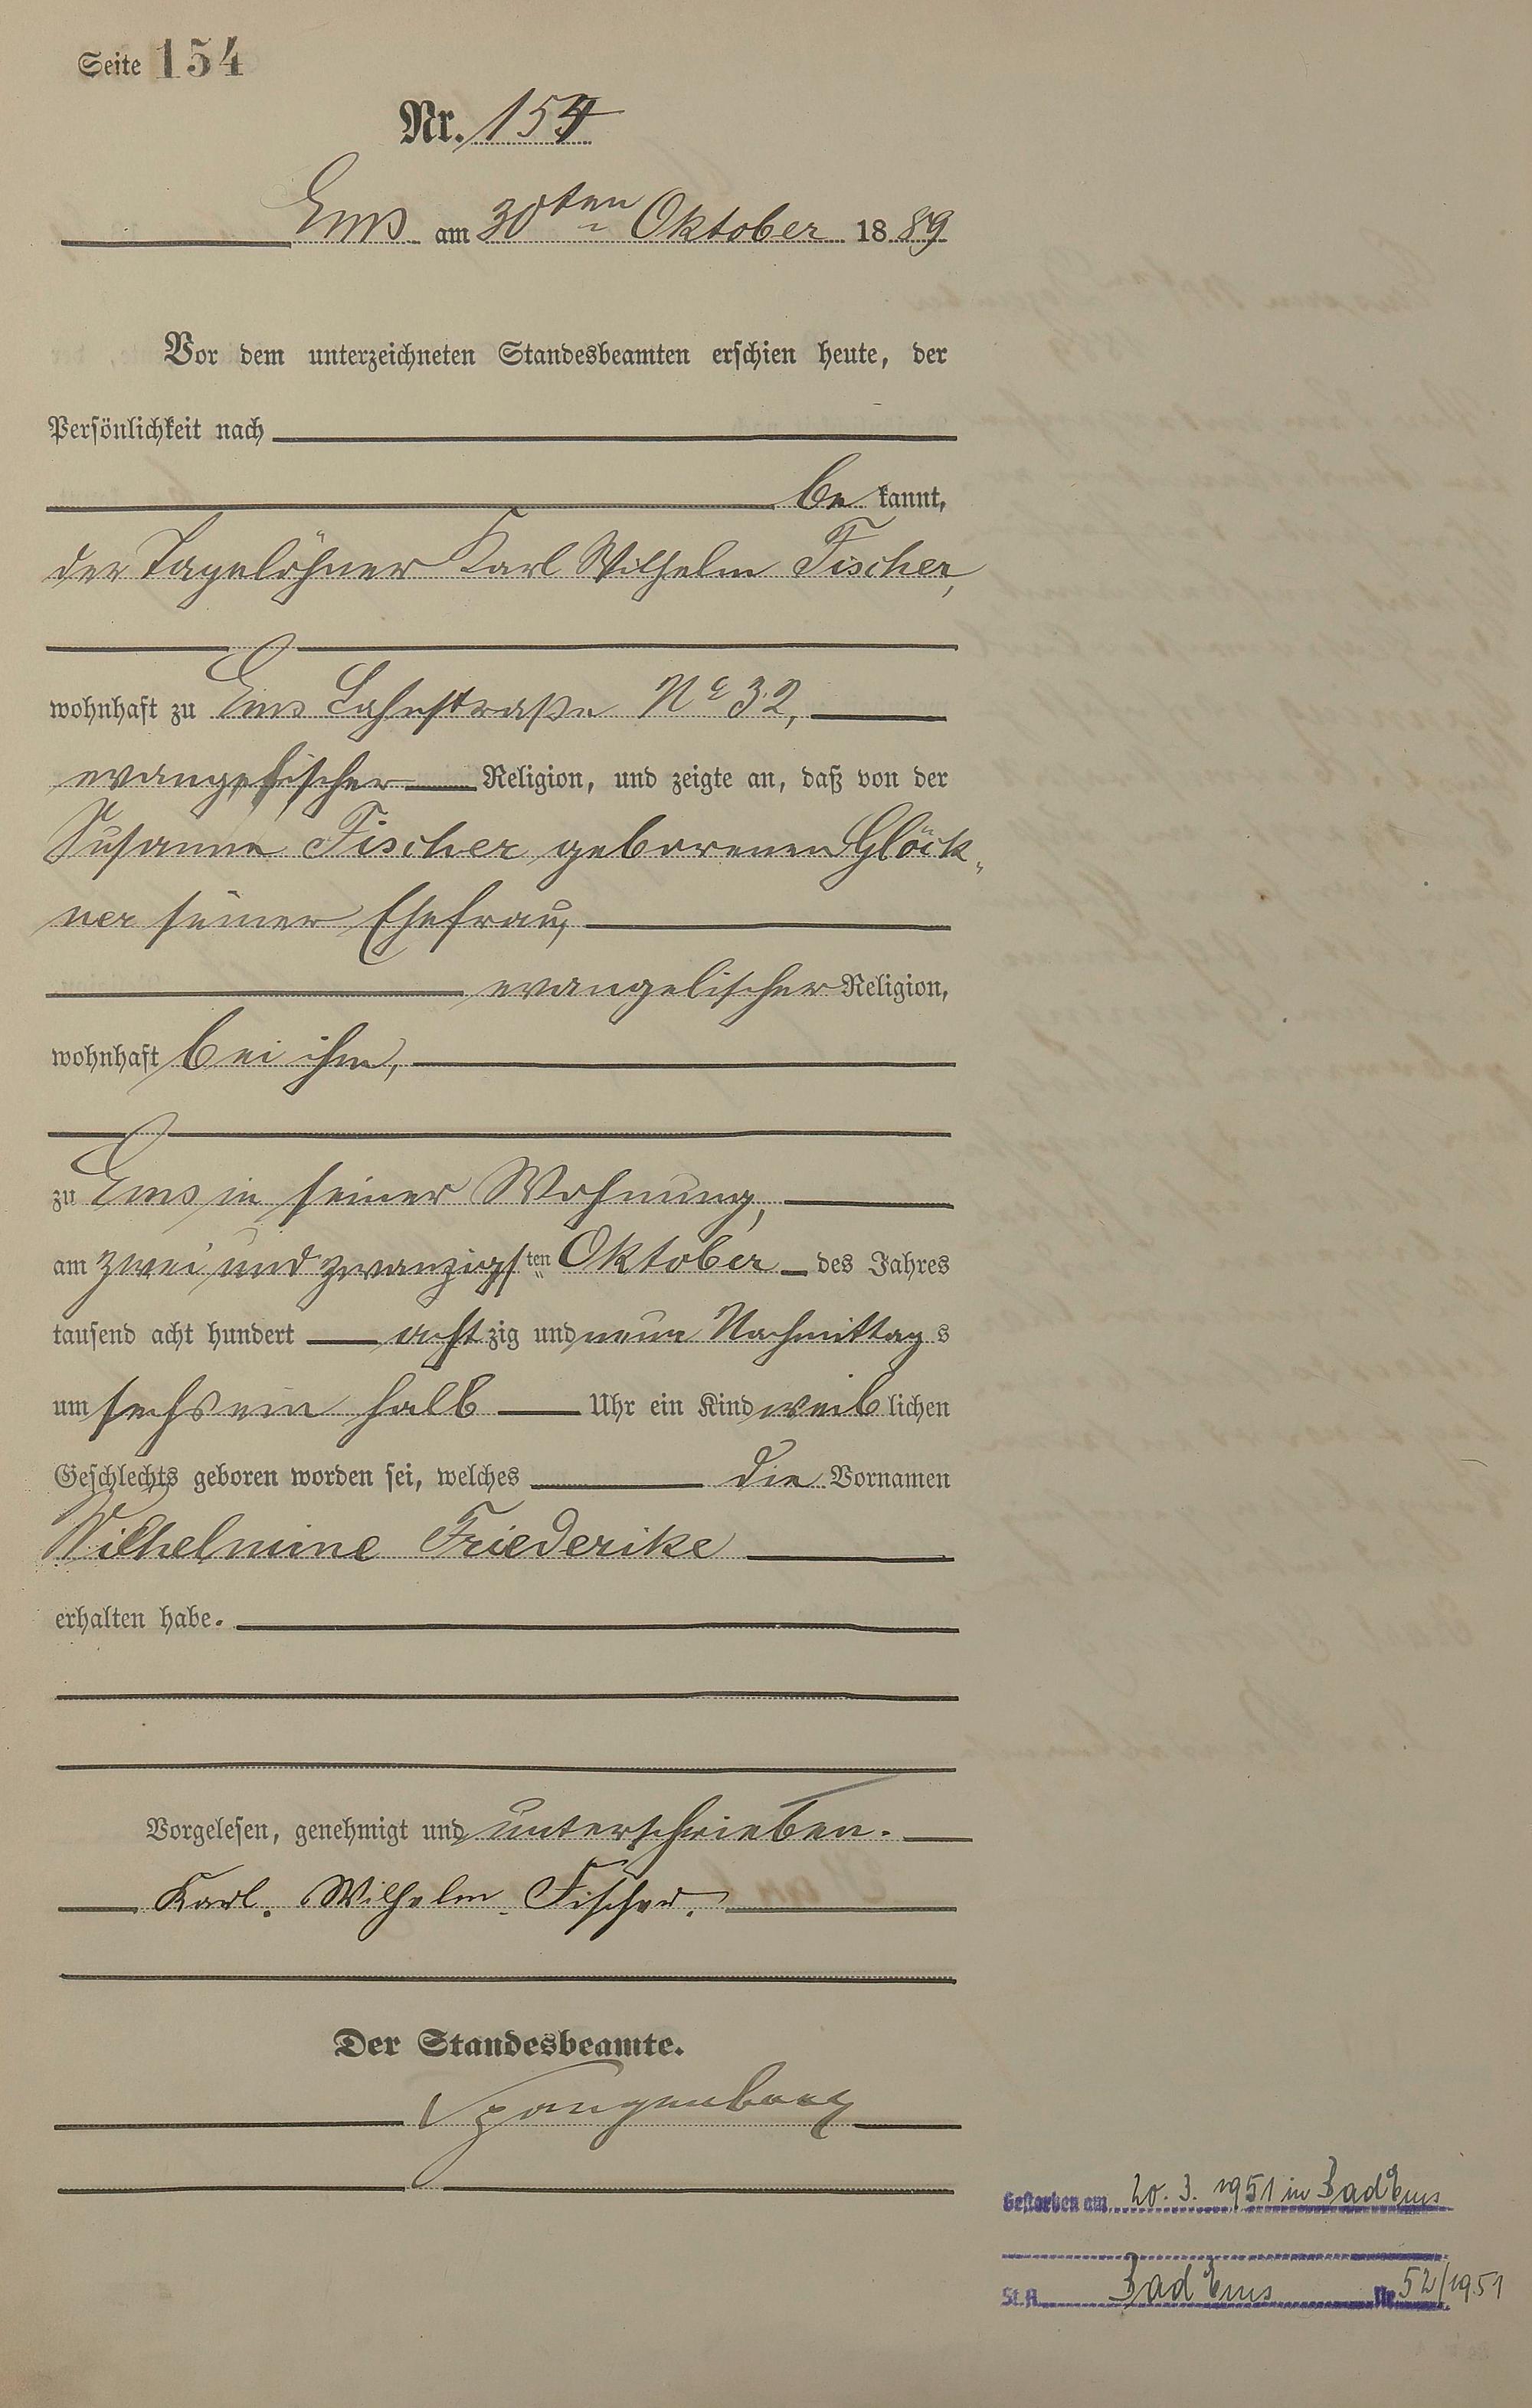 Seite 154
Nr. 154
Ems am 30ten Oktober 1889
Vor dem unterzeichneten Standesbeamten erschien heute, der
Persönlichkeit nach
be kannt,
der Tagelöhner Karl Wilhelm Fischer,
wohnhaft zu Ems Lahnstraße No 32,
evangelischer Religion, und zeigte an, daß von der
Susanna Fischer geborenen Glöck-
ner seiner Ehefrau,
evangelischer Religion,
wohnhaft bei ihm,
zu Ems in seiner Wohnung,
am zwei und zwanzigsten Oktober des Jahres
tausend acht hundert acht zig und neun Nachmittag s
um sechs ein halb Uhr ein Kind weib lichen
Geschlechts geboren worden sei, welches die Vornamen
Wilhelmine Friederike
erhalten habe.
Vorgelesen, genehmigt und unterschrieben.
Karl. Wilhelm. Fischer.
Der Standesbeamte.
Spangenberg
Gestorben am 20.3.1951 in Bad Ems
St.A. Bad Ems Nr. 52/1951